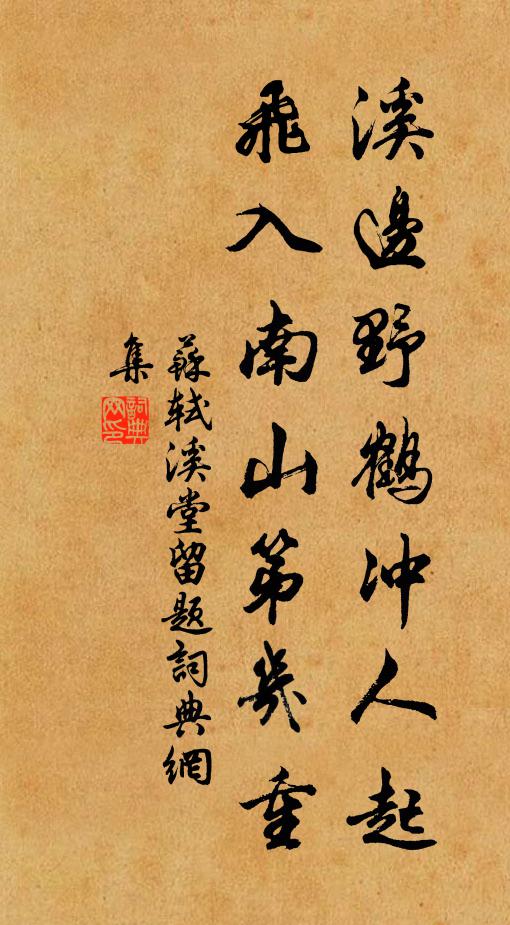 溪邊野鶴冲人起
飛入南山第幾重
蘇軾溪堂留題詞典網
集
詞典
网印